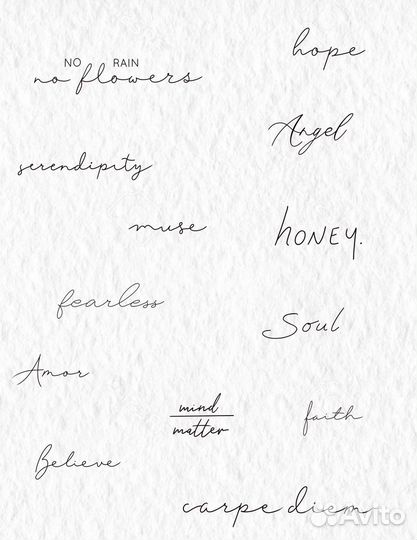 NO RAIN
no flowers
hope
Angel
serendipity
muse
honey.
fearless
Soul
Amor
mind
matter
faith
Believe
carpe diem
Avito